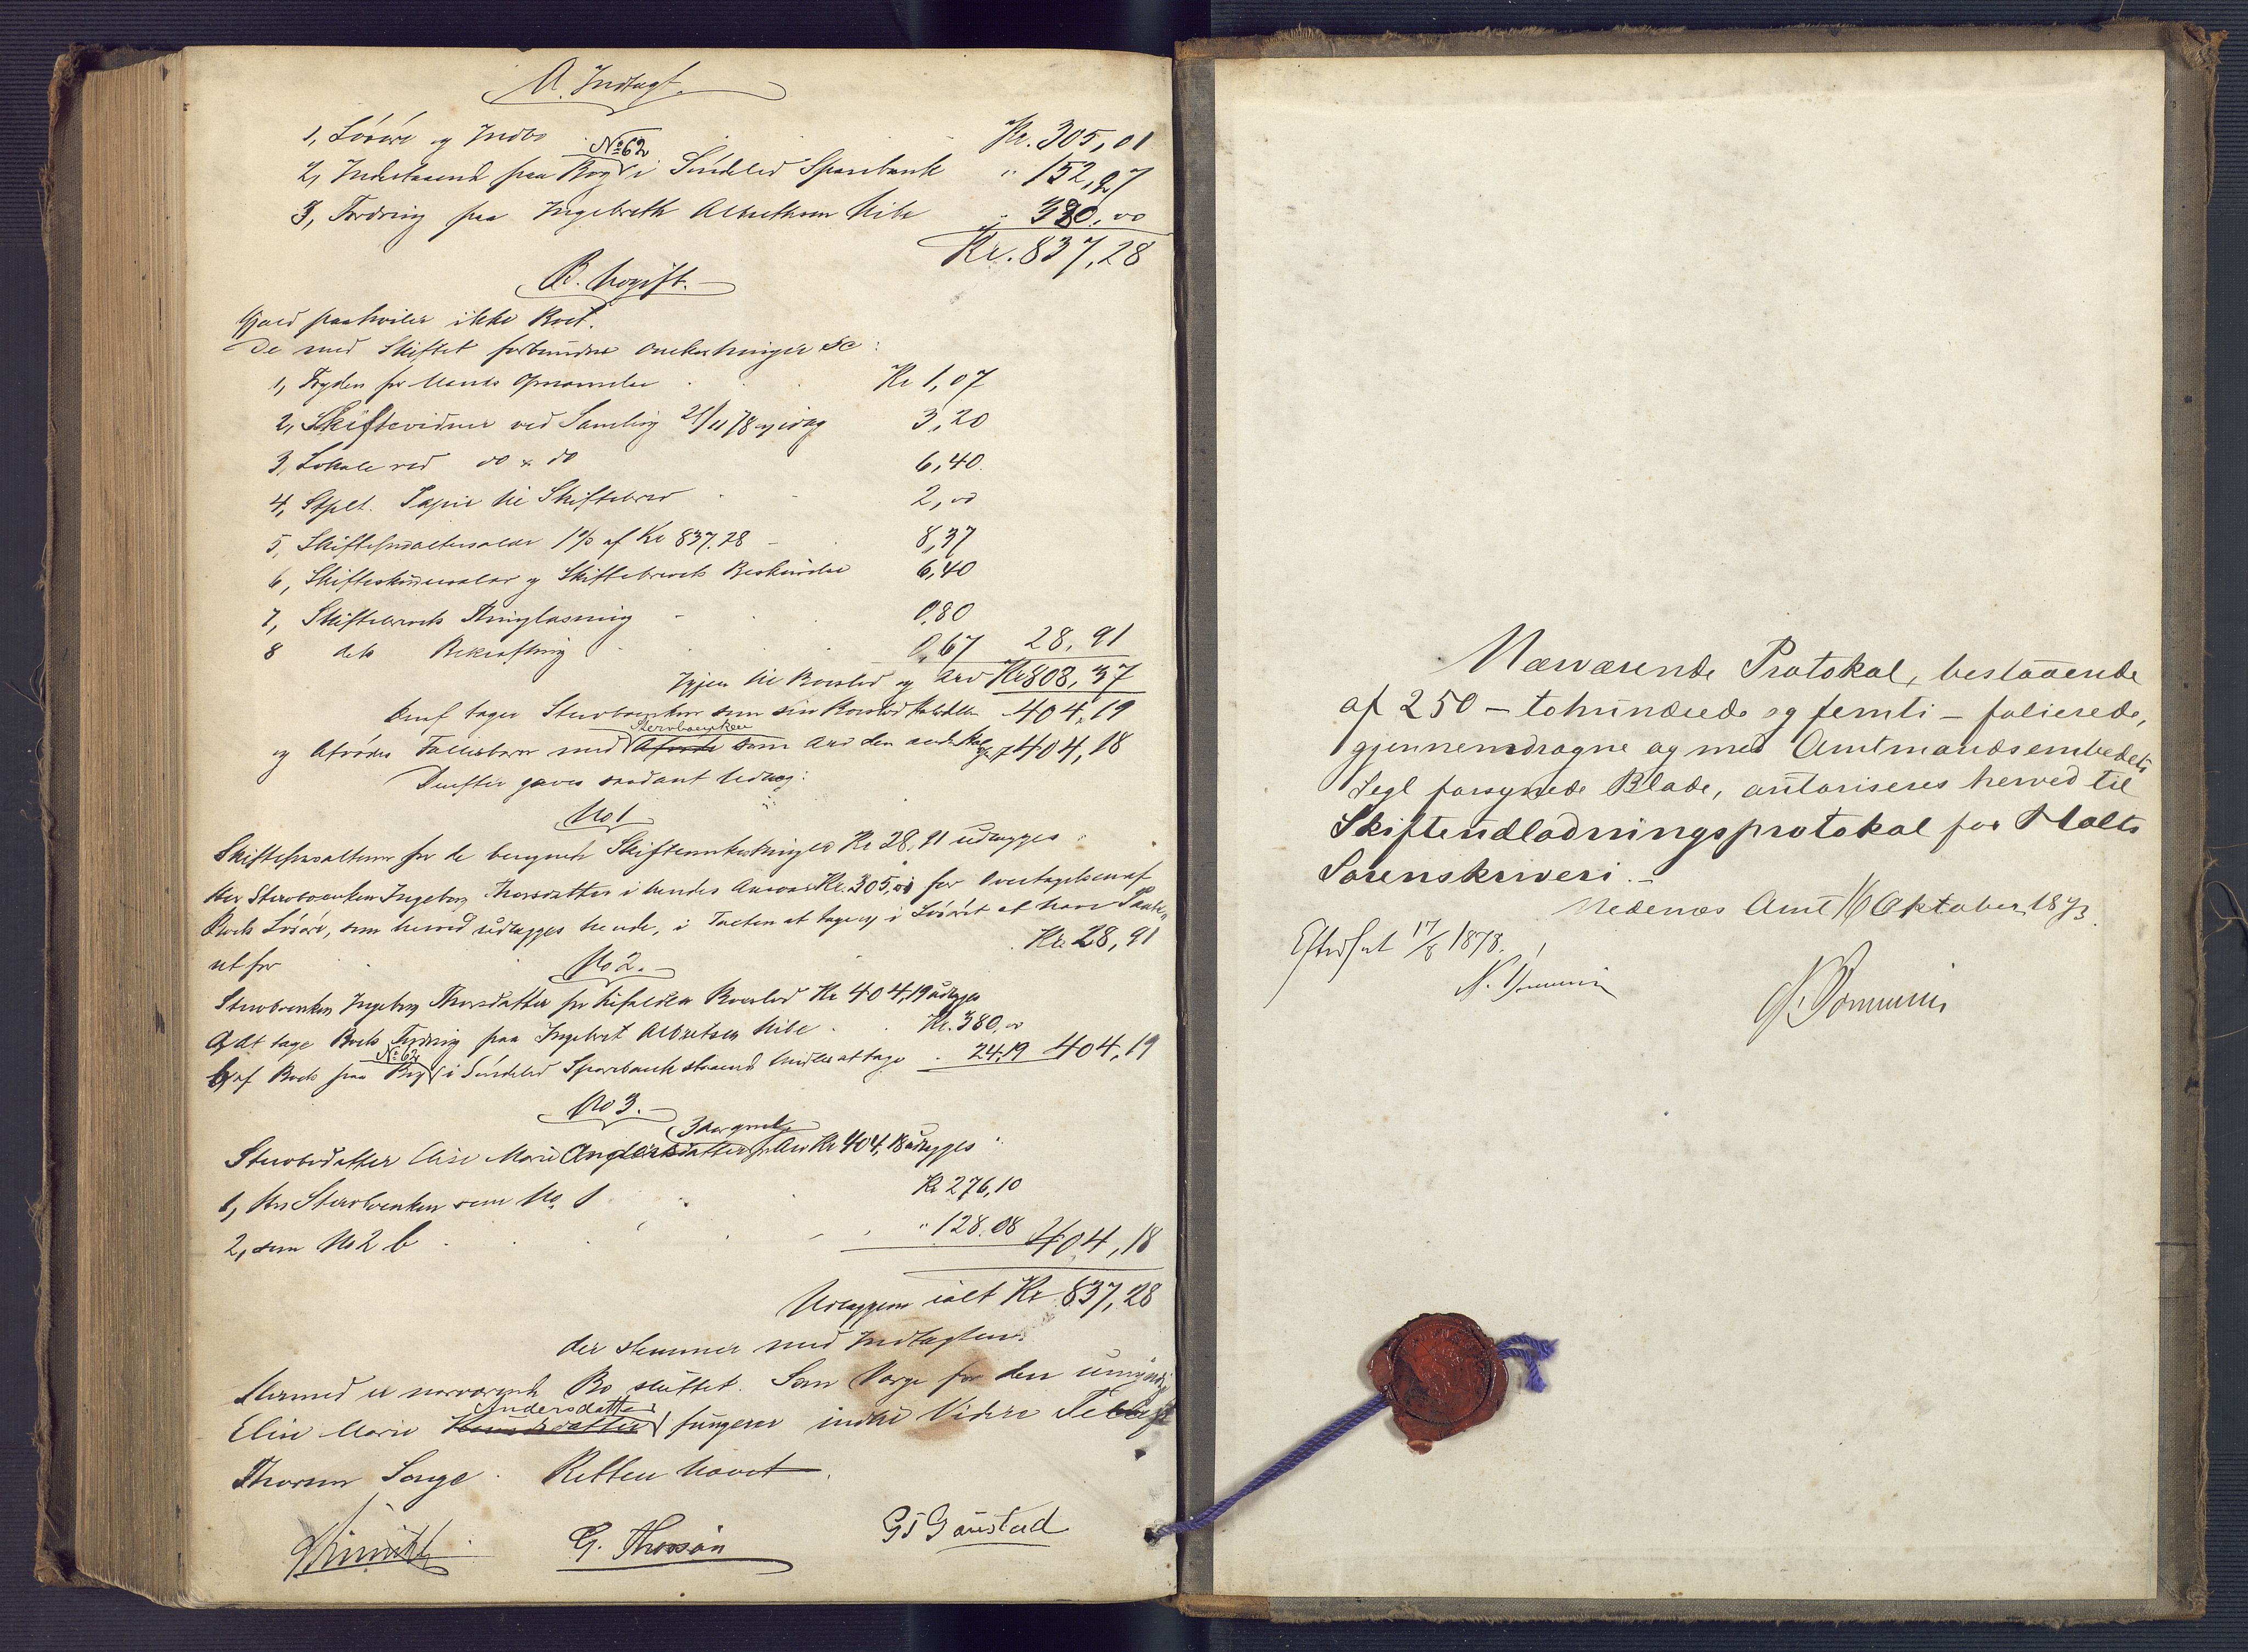 A. Indtægt.
1, Løsøre og Indbo Kr. 305,01
2, Indestaaende paa Bog No 62 i Søndeled Sparebank " 152,27
3, Fordring paa Ingebreth Albrethsen Vibe " 380,00
Kr. 837,28
B. Udgift.
Gjæld paahviler ikke Boet.
De med Skiftet forbundne Omkostninger ere:
1, Foged for Mænds Opnævnelse Kr 1,07
2, Skiftevidner ved Samling 21/11 78 og idag 3,20
3, Lokale ved do & do 6,40
4, Stplt. Papir til Skiftebrev 2,00
5, Skifteforvaltersalær 1 % af Kr 837.28 8,37
6, Skifteskriversalær og Skiftebrevets Beskrivelse 6,40
7, Skiftebrevets Thinglæsning 0,80
8 dets Bekræftning 0,67 28,91
Igjen til Boeslod og Arv Kr 808,37
Deraf tager Stervboenken som sin Boeslod Halvdelen 404,19
og Afdødes Fællesbarn med Stervboenken som Arv den anden Halvdel 404,18
Derefter gjøres saadant Udlæg:
No 1
Skifteforvalteren for de beregnede Skifteomkostninger Kr 28,91 udlægges
hos Stervboenken Ingeborg Thorsdatter i hendes Ansvar Kr. 305,01 for Overtagelsen af
Boets Løsøre, som herved udlægges hende, i Tacten at tage og i Løsøret at have Panteret
for Kr. 28,91
No 2.
Stervboenken Ingeborg Thorsdatter for tilfalden Boeslod Kr 404,19 udlægges
a, At tage Boets Fordring paa Ingebret Albretsen Vibe Kr. 380,00
b, af Boets paa Bog No 62 i Søndeled Sparebank staaende Midler at tage 24,19 404,19
No 3.
Stervbodatter Elise Marie Andersdatter for Arv Kr 404,18 udlægges
1, Hos Stervboenken som No. 1 Kr 276,10
2, som No 2 b " 128,08 404,18
Udlæggene ialt Kr 837,28
der stemmer med Indtægten.
Hermed er nærværende Bo sluttet. Som Værge for den umyndige
Elise Marie Andersdatter fungerer indtil Videre Tellef
Thorsen Songe. Retten hævet.
G. Thorsen GTGaustad
Nærværende Protokol, bestaaende
af 250 – tohundrede og femti – folierede,
gjennemdragne og med Amtmandsembedets
Segl forsynede Blade, autoriseres herved til
Skifteudlodningsprotokol for Holts
Sorenskriveri. –
Nedenæs Amt 16 Oktober 1873.
Efterset 17/8 1878.